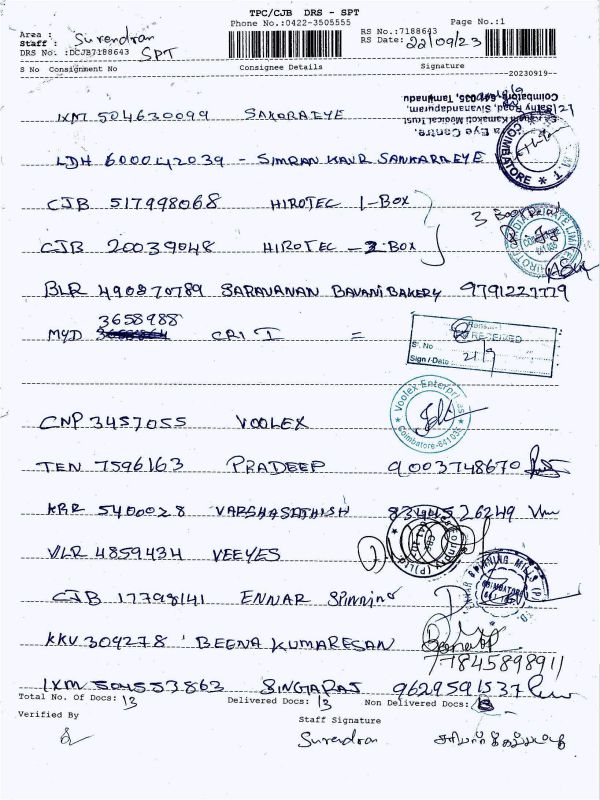 TPC/CJB DRS - SPT
Phone No.:0422-3505555 Page No.:1
Area :
Staff : Surendran RS No.:7188643
DRS No. :DCJB7188643 SPT RS Date: 22/09/23
S No Consignment No Consignee Details Signature
20230919
Sathy Road, Sivanandapuram,
Coimbatore - 641 035, Tamilnadu
Kamakoti Medical Trust
Eye Centre.
IXM 504630099 SAKARAEYE
COIMBATORE
LDH 600042039 - SIMRAN KAUR SANKARAEYE
CJB 517998068 HIROTEC 1-BOX
3 Box
CJB 20039048 HIROTEC - 2 BOX
BLR 490870789 SARAVANAN BAVANI BAKERY 9791227779
3658988
MYD CRI I =
RECEIVED
S. No
Sign / Date 21/9
CNP 3457055 VOOLEX
Voolex Enterprises
Coimbatore-641 035
TEN 7596163 PRADEEP 9003748670
KRR 5400028 VARSHASATHISH
VLR 4859434 VEEYES
CJB 17798141 ENNAR Spinning
SPINNING MILLS (P)
KKV 309278 BEENA KUMARESAN
77845898911
IXM 504553863 SINGARAJ 9629591537
Total No. Of Docs: 13 Delivered Docs: 13 Non Delivered Docs:
Verified By Staff Signature
Surendran